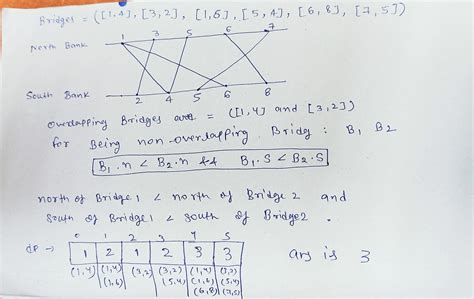 Bridges = ([1,4], [3,2], [1,6], [5,4], [6,8], [7,5])
North Bank 1 3 5 6 7
South Bank 2 4 5 6 8
Overlapping Bridges are = ([1,4] and [3,2])
for Being non-overlapping Bridg : B1 B2
B1.n < B2.n && B1.S < B2.S
north of Bridge 1 < north of Bridge 2 and
South of Bridge 1 < South of Bridge 2.
0 1 2 3 4 5
dp → 1 2 1 2 3 3 ans is 3
(1,4) (1,4) (3,2) (3,2) (1,4) (3,2)
(1,6) (5,4) (1,6) (5,4)
(6,8) (7,5)